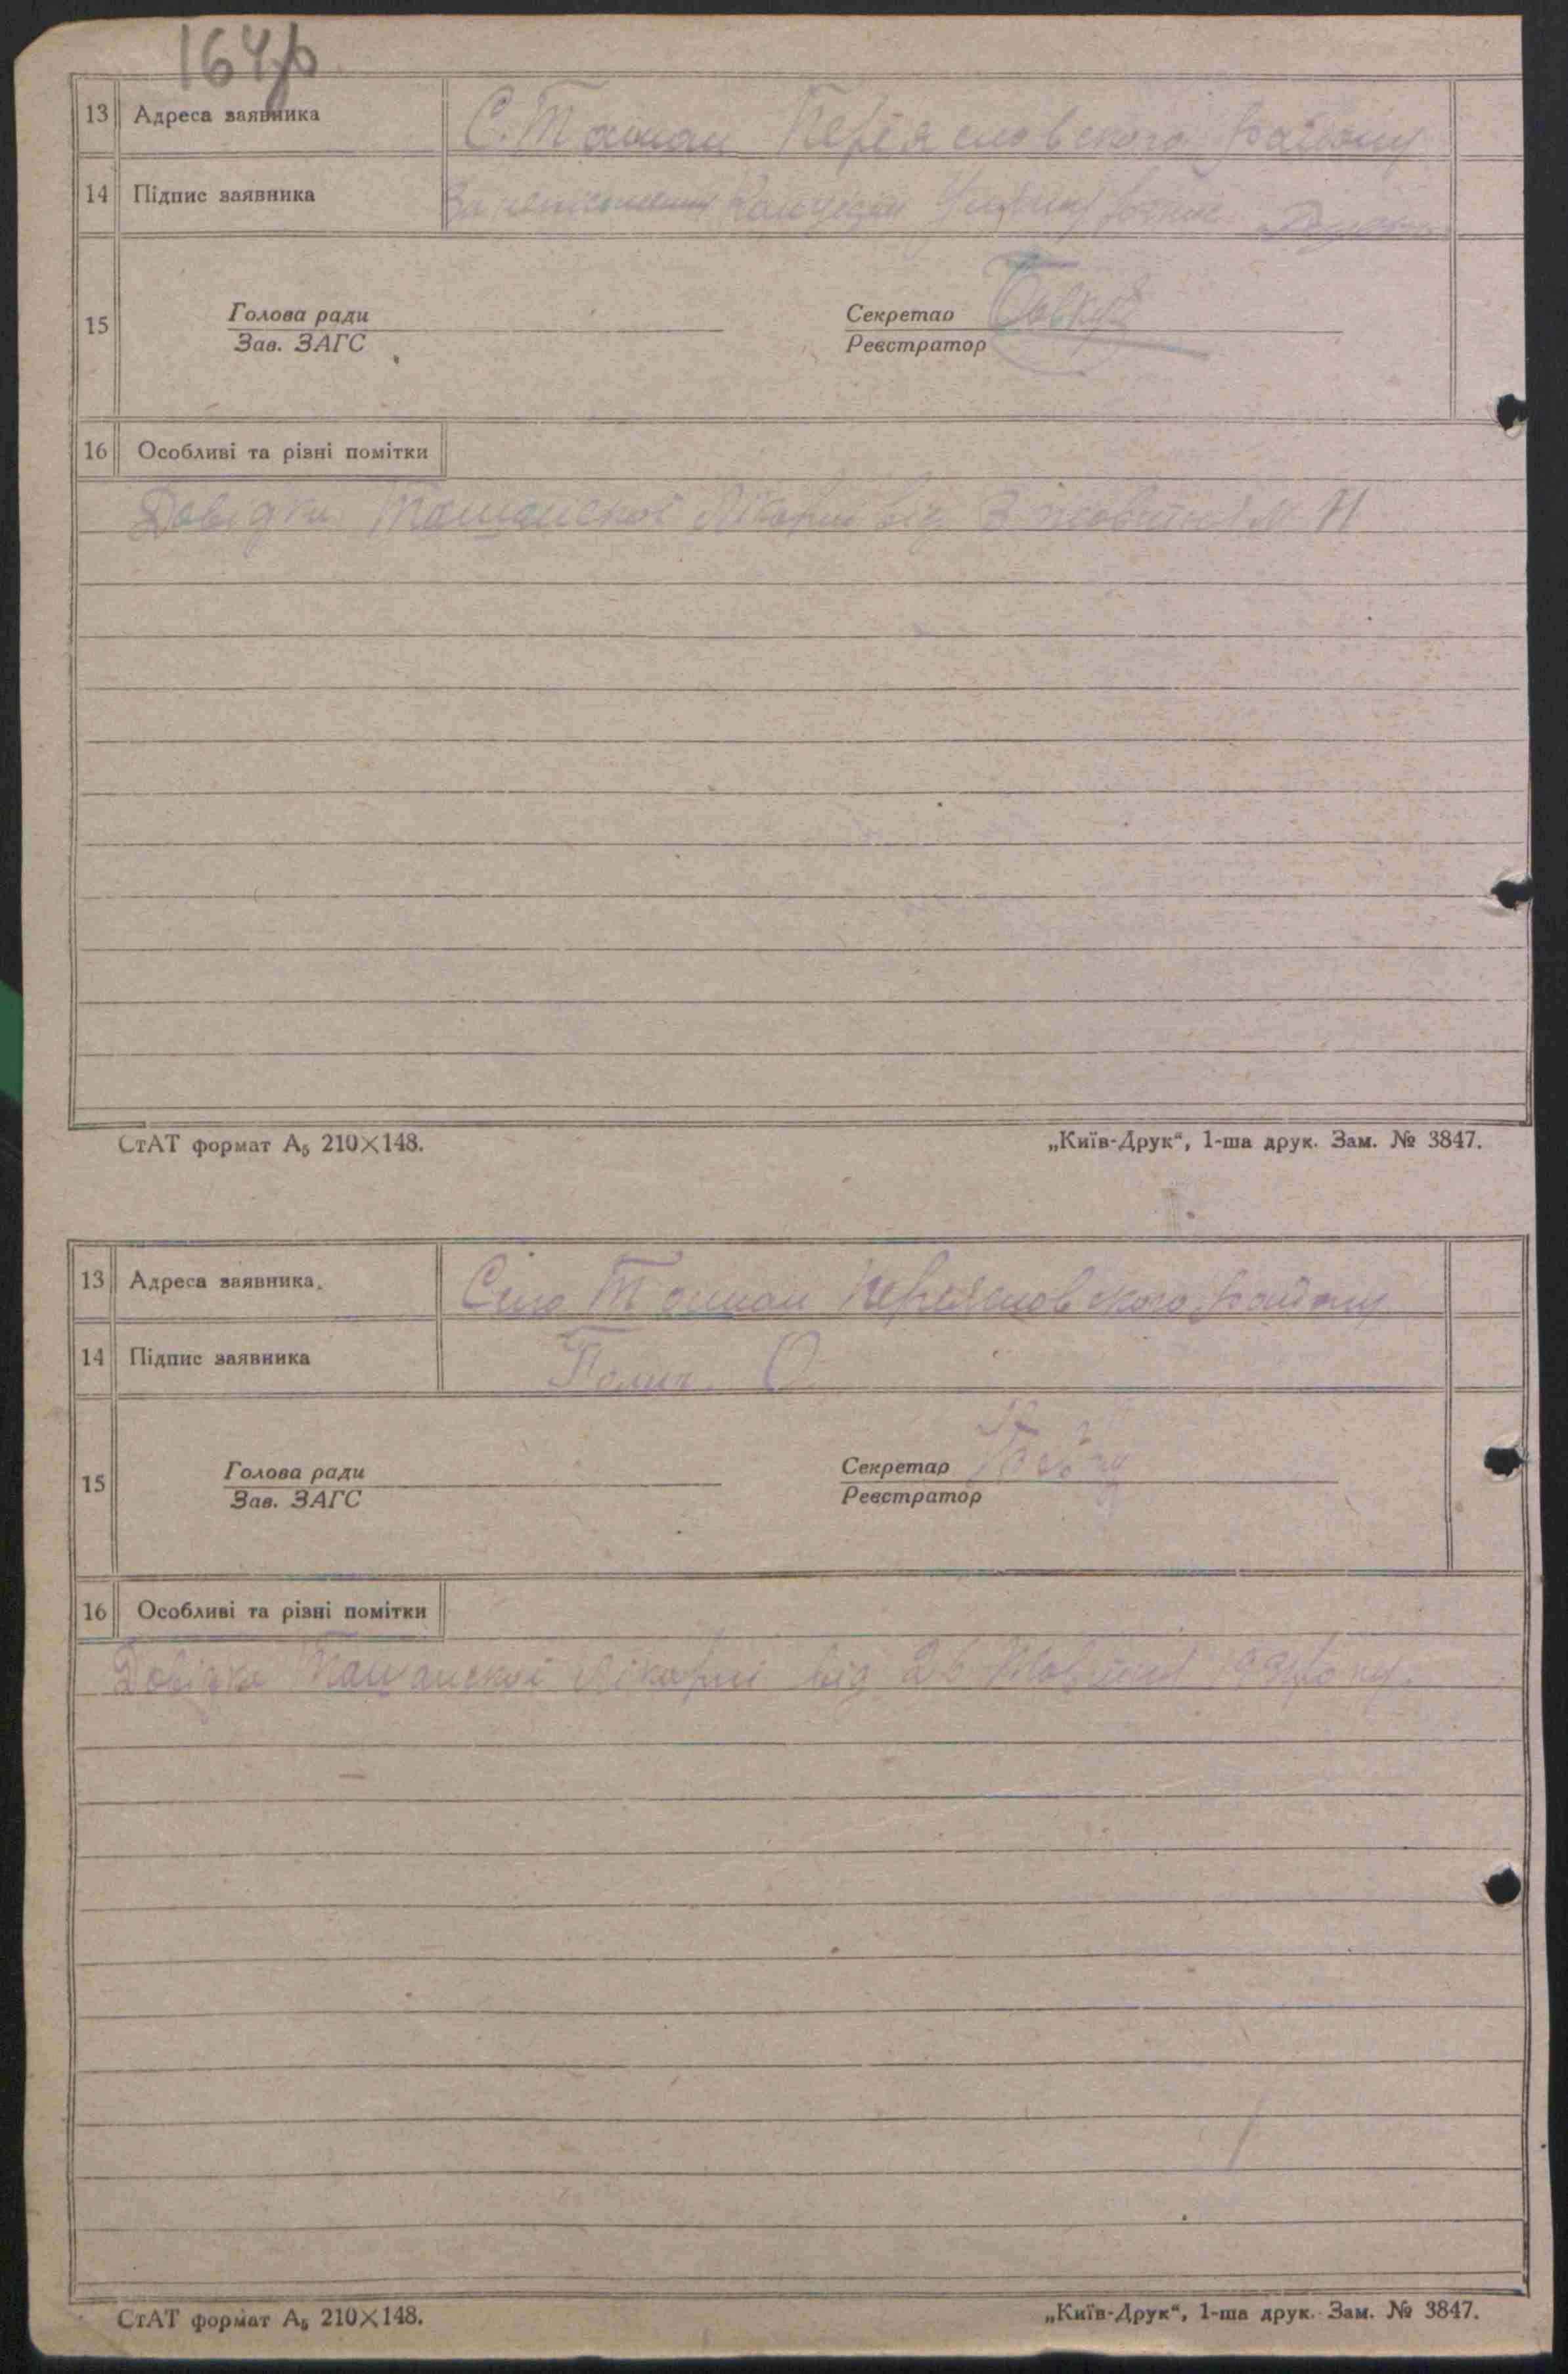 164
13 Адреса заявника С. Ташань Переяславского району
14 Підпис заявника За
15 Голова ради Секретар
Зав. ЗАГС Реєстратор
16 Особливі та різні помітки
Довідка Ташанскої Лікарні від 3 жовтня № 11
СтАТ формат А₅ 210×148. „Київ-Друк“, 1-ша друк. Зам. № 3847.
13 Адреса заявника. Село Ташань Переяславского району
14 Підпис заявника
15 Голова ради Секретар
Зав. ЗАГС Реєстратор
16 Особливі та різні помітки
Довідка Ташанскої Лікарні від 26 Жовтня року
СтАТ формат А₅ 210×148. „Київ-Друк“, 1-ша друк. Зам. № 3847.